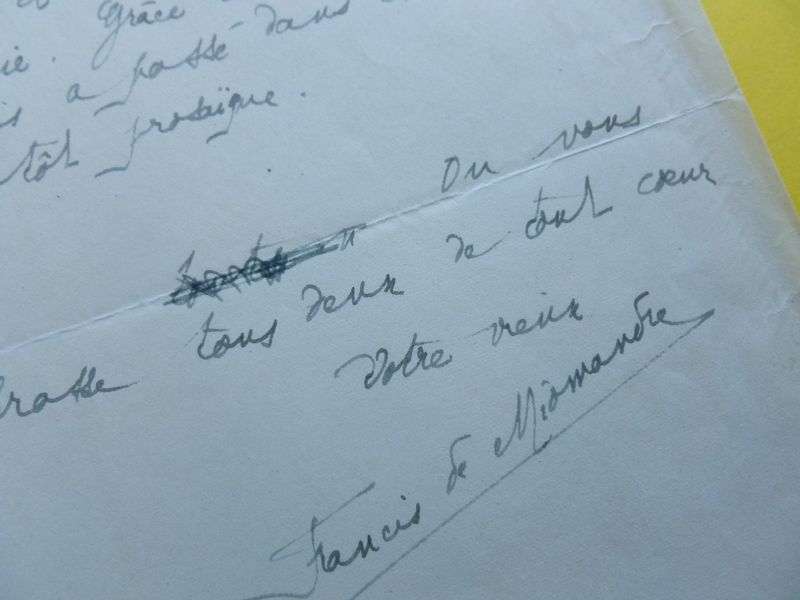 Grâce
ie.
is a passé dans
tôt prosaïque.
On vous
brasse tous deux de tout cœur
Votre vieux
Francis de Miomandre